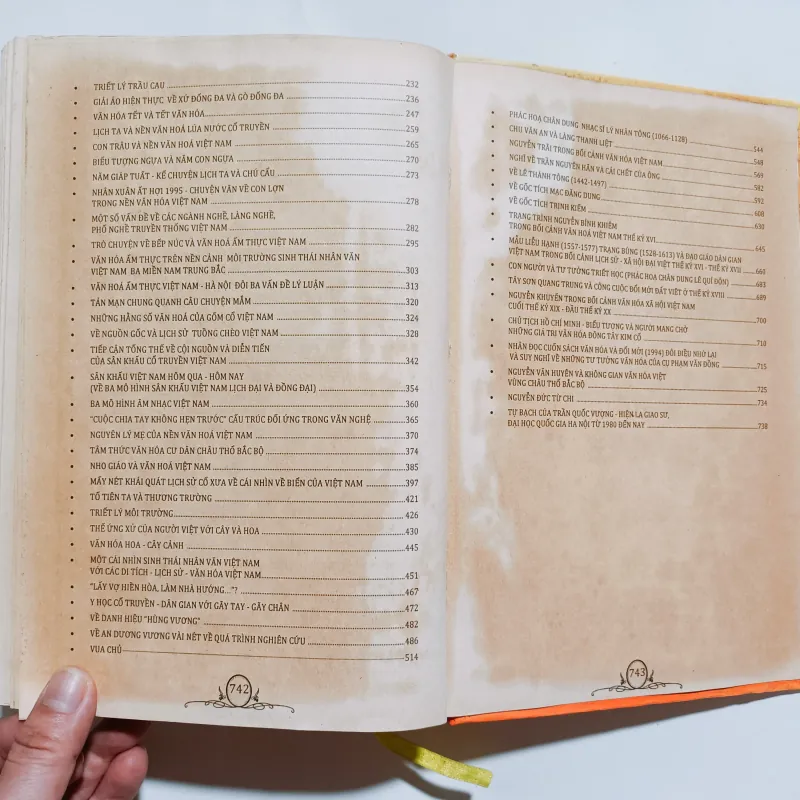 • TRIẾT LÝ TRẦU CAU 232
• GIẢI ẢO HIỆN THỰC VỀ XỨ ĐỐNG ĐA VÀ GÒ ĐỐNG ĐA 236
• VĂN HÓA TẾT VÀ TẾT VĂN HÓA 247
• LỊCH TA VÀ NỀN VĂN HOÁ LÚA NƯỚC CỔ TRUYỀN 259
• CON TRÂU VÀ NỀN VĂN HOÁ VIỆT NAM 265
• BIỂU TƯỢNG NGỰA VÀ NĂM CON NGỰA 270
• NĂM GIÁP TUẤT - KỂ CHUYỆN LỊCH TA VÀ CHÚ CẨU 273
• NHÂN XUÂN ẤT HỢI 1995 - CHUYỆN VĂN VỀ CON LỢN
TRONG NỀN VĂN HÓA VIỆT NAM 278
• MỘT SỐ VẤN ĐỀ VỀ CÁC NGÀNH NGHỀ, LÀNG NGHỀ,
PHỐ NGHỀ TRUYỀN THỐNG VIỆT NAM 282
• TRÒ CHUYỆN VỀ BẾP NÚC VÀ VĂN HOÁ ẨM THỰC VIỆT NAM 295
• VĂN HÓA ẨM THỰC TRÊN NỀN CẢNH MÔI TRƯỜNG SINH THÁI NHÂN VĂN
VIỆT NAM BA MIỀN NAM TRUNG BẮC 303
• VĂN HOÁ ẨM THỰC VIỆT NAM - HÀ NỘI ĐÔI BA VẤN ĐỀ LÝ LUẬN 313
• TẢN MẠN CHUNG QUANH CÂU CHUYỆN MẮM 320
• NHỮNG HẰNG SỐ VĂN HOÁ CỦA GỐM CỔ VIỆT NAM 324
• VỀ NGUỒN GỐC VÀ LỊCH SỬ TUỒNG CHÈO VIỆT NAM 328
• TIẾP CẬN TỔNG THỂ VỀ CỘI NGUỒN VÀ DIỄN TIẾN
CỦA SÂN KHẤU CỔ TRUYỀN VIỆT NAM 342
• SÂN KHẤU VIỆT NAM HÔM QUA - HÔM NAY
(VỀ BA MÔ HÌNH SÂN KHẤU VIỆT NAM LỊCH ĐẠI VÀ ĐỒNG ĐẠI) 354
• BA MÔ HÌNH ÂM NHẠC VIỆT NAM 360
• "CUỘC CHIA TAY KHÔNG HẸN TRƯỚC" CẤU TRÚC ĐỐI ỨNG TRONG VĂN NGHỆ 365
• NGUYÊN LÝ MẸ CỦA NỀN VĂN HOÁ VIỆT NAM 370
• TÂM THỨC VĂN HÓA CƯ DÂN CHÂU THỔ BẮC BỘ 374
• NHO GIÁO VÀ VĂN HOÁ VIỆT NAM 385
• MẤY NÉT KHÁI QUÁT LỊCH SỬ CỔ XƯA VỀ CÁI NHÌN VỀ BIỂN CỦA VIỆT NAM 397
• TỔ TIÊN TA VÀ THƯƠNG TRƯỜNG 421
• TRIẾT LÝ MÔI TRƯỜNG 426
• THẾ ỨNG XỬ CỦA NGƯỜI VIỆT VỚI CÂY VÀ HOA 430
• VĂN HÓA HOA - CÂY CẢNH 445
• MỘT CÁI NHÌN SINH THÁI NHÂN VĂN VIỆT NAM
VỚI CÁC DI TÍCH - LỊCH SỬ - VĂN HÓA VIỆT NAM 451
• "LẤY VỢ HIỀN HÒA, LÀM NHÀ HƯỚNG..."? 467
• Y HỌC CỔ TRUYỀN - DÂN GIAN VỚI GÃY TAY - GÃY CHÂN 472
• VỀ DANH HIỆU "HÙNG VƯƠNG" 482
• VỀ AN DƯƠNG VƯƠNG VÀI NÉT VỀ QUÁ TRÌNH NGHIÊN CỨU 486
• VUA CHỦ 514
742
• PHÁC HOẠ CHÂN DUNG NHẠC SĨ LÝ NHÂN TÔNG (1066-1128) 544
• CHU VĂN AN VÀ LÀNG THANH LIỆT 548
• NGUYỄN TRÃI TRONG BỐI CẢNH VĂN HÓA VIỆT NAM 569
• NGHĨ VỀ TRẦN NGUYÊN HÃN VÀ CÁI CHẾT CỦA ÔNG 582
• VỀ LÊ THÁNH TÔNG (1442-1497) 592
• VỀ GỐC TÍCH MẠC ĐĂNG DUNG 608
• VỀ GỐC TÍCH TRỊNH KIỂM 630
• TRẠNG TRÌNH NGUYỄN BỈNH KHIÊM
TRONG BỐI CẢNH VĂN HOÁ VIỆT NAM THẾ KỶ XVI 645
• MẪU LIỄU HẠNH (1557-1577) TRẠNG BÙNG (1528-1613) VÀ ĐẠO GIÁO DÂN GIAN
VIỆT NAM TRONG BỐI CẢNH LỊCH SỬ - XÃ HỘI ĐẠI VIỆT THẾ KỶ XVI - THẾ KỶ XVII 660
• CON NGƯỜI VÀ TƯ TƯỞNG TRIẾT HỌC (PHÁC HOẠ CHÂN DUNG LÊ QUÍ ĐÔN) 683
• TÂY SƠN QUANG TRUNG VÀ CÔNG CUỘC ĐỔI MỚI ĐẤT VIỆT Ở THẾ KỶ XVIII 689
• NGUYỄN KHUYẾN TRONG BỐI CẢNH VĂN HÓA XÃ HỘI VIỆT NAM
CUỐI THẾ KỶ XIX - ĐẦU THẾ KỶ XX 700
• CHỦ TỊCH HỒ CHÍ MINH - BIỂU TƯỢNG VÀ NGƯỜI MANG CHỞ
NHỮNG GIÁ TRỊ VĂN HÓA ĐÔNG TÂY KIM CỔ 710
• NHÂN ĐỌC CUỐN SÁCH VĂN HÓA VÀ ĐỔI MỚI (1994) ĐÔI ĐIỀU NHỚ LẠI
VÀ SUY NGHĨ VỀ NHỮNG TƯ TƯỞNG VĂN HÓA CỦA CỤ PHẠM VĂN ĐỒNG 715
• NGUYỄN VĂN HUYÊN VÀ KHÔNG GIAN VĂN HÓA VIỆT
VÙNG CHÂU THỔ BẮC BỘ 725
• NGUYỄN ĐỨC TỪ CHI 734
• TỰ BẠCH CỦA TRẦN QUỐC VƯỢNG - HIỆN LÀ GIÁO SƯ,
ĐẠI HỌC QUỐC GIA HÀ NỘI TỪ 1980 ĐẾN NAY 738
743